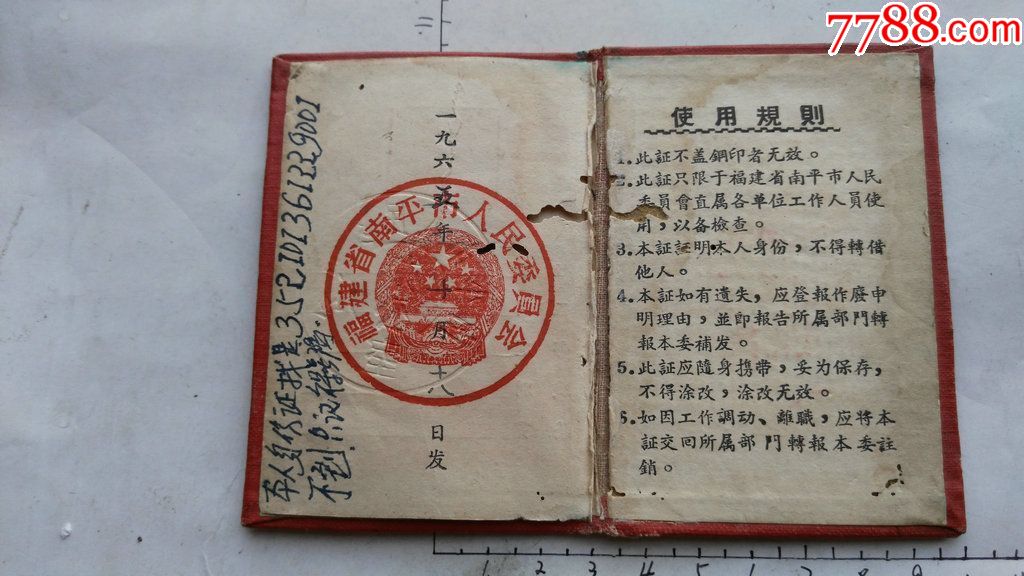 7788.com
一九六五年十月二十八日发
福建省南平市人民委员会
本人身份证找
不到
使用规则
1.此証不盖鋼印者无效。
2.此証只限于福建省南平市人民
委員會直属各单位工作人員使
用，以备檢查。
3.本証証明本人身份，不得轉借
他人。
4.本証如有遺失，应登報作廢申
明理由，並即報告所属部門轉
報本委補发。
5.此証应隨身携带，妥为保存，
不得涂改，涂改无效。
6.如因工作調动、離職，应將本
証交回所属部門轉報本委註
銷。
1 2 3 4 5 6 7 8 9